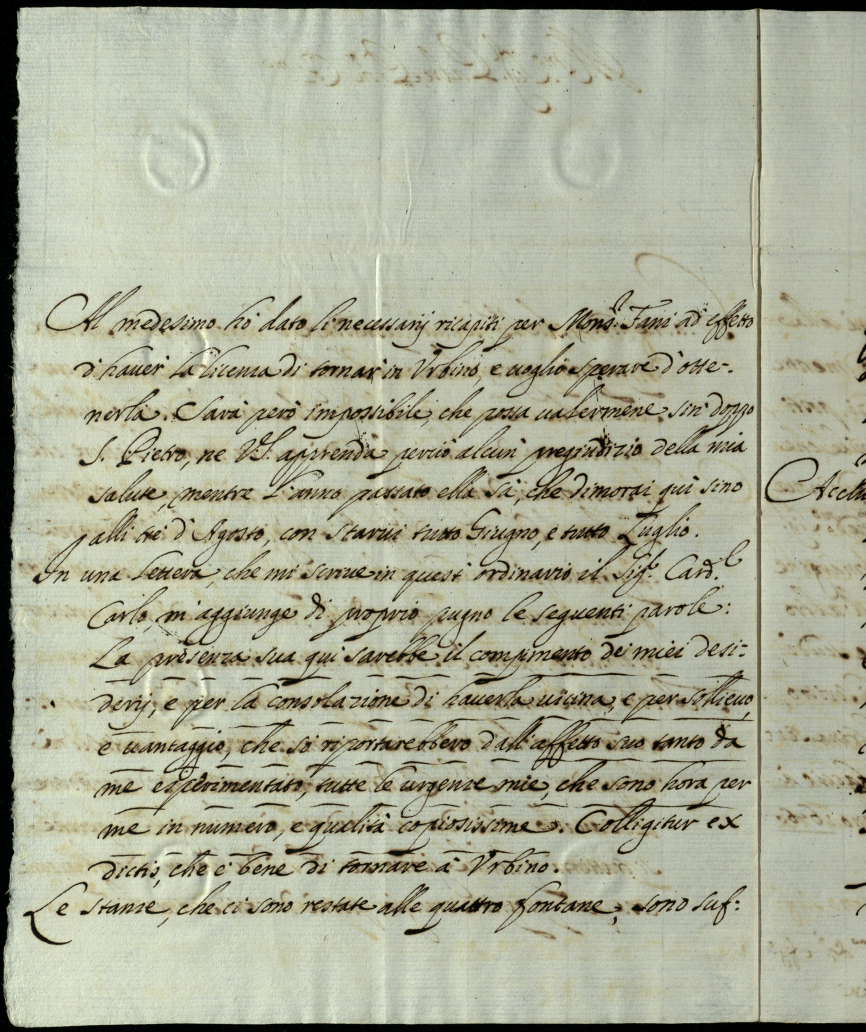 Al medesimo hò dato li necessarij ricapiti per Mons.r Fani ad effetto
d'haver la licenza di tornar in Vrbino, e uoglio sperare d'otte-
nerla. Sarà però impossibile, che possa ualermene sin doppo
S. Pietro, ne V.S. apprenda perciò alcun pregiudizio della mia
salute, mentre l'anno passato ella sà, che dimorai quì sino
alli di d'Agosto, con starui tutto Giugno, e tutto Luglio.
In una lettera, che mi scriue in quest'ordinario il Sig.r Card.l
Carlo, m'aggiunge di proprio pugno le seguenti parole:
La presenza sua qui sarebbe il compimento de miei desi-
derij, e per la consolazione di hauerla uicina, e per sollieuo,
e uantaggio, che si riportarebbero dall'affetto suo tanto da
me esperimentato, tutte le urgenze mie, che sono hora per
me in numero, e qualità copiosissime. Colligitur ex
dictis, che è bene di tornare à Vrbino.
Le stanze, che ci sono restate alle quattro fontane, sono suf-